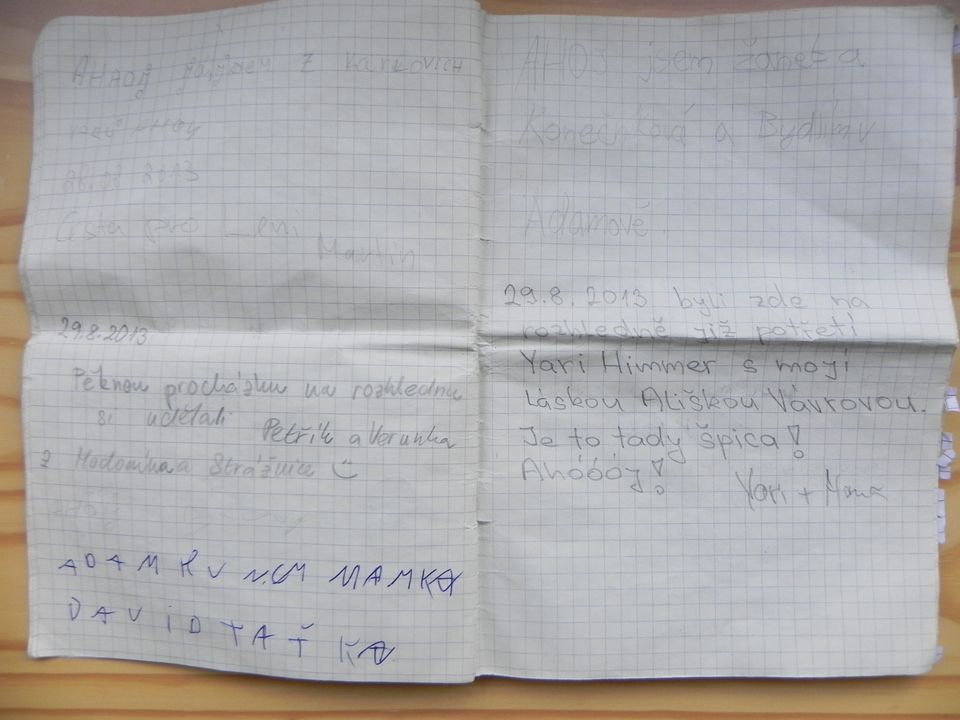 AHAOJ z Karkovich
28.08 2013
Cesta pro
Martin
29.8.2013
Pěknou procházku na rozhlednu
si udělali Petřík a Verunka
z Hodonína a Strážnice
ADAM MAMKA
DAVID TAŤKA
AHOJ jsem Žaneta
Konečníková a Bydlím v
Adamově.
29.8.2013 byli zde na
rozhledně již potřetí
Yari Himmer s mojí
Láskou Ališkou Vávrovou.
Je to tady špica!
Ahóóój!
Yari +